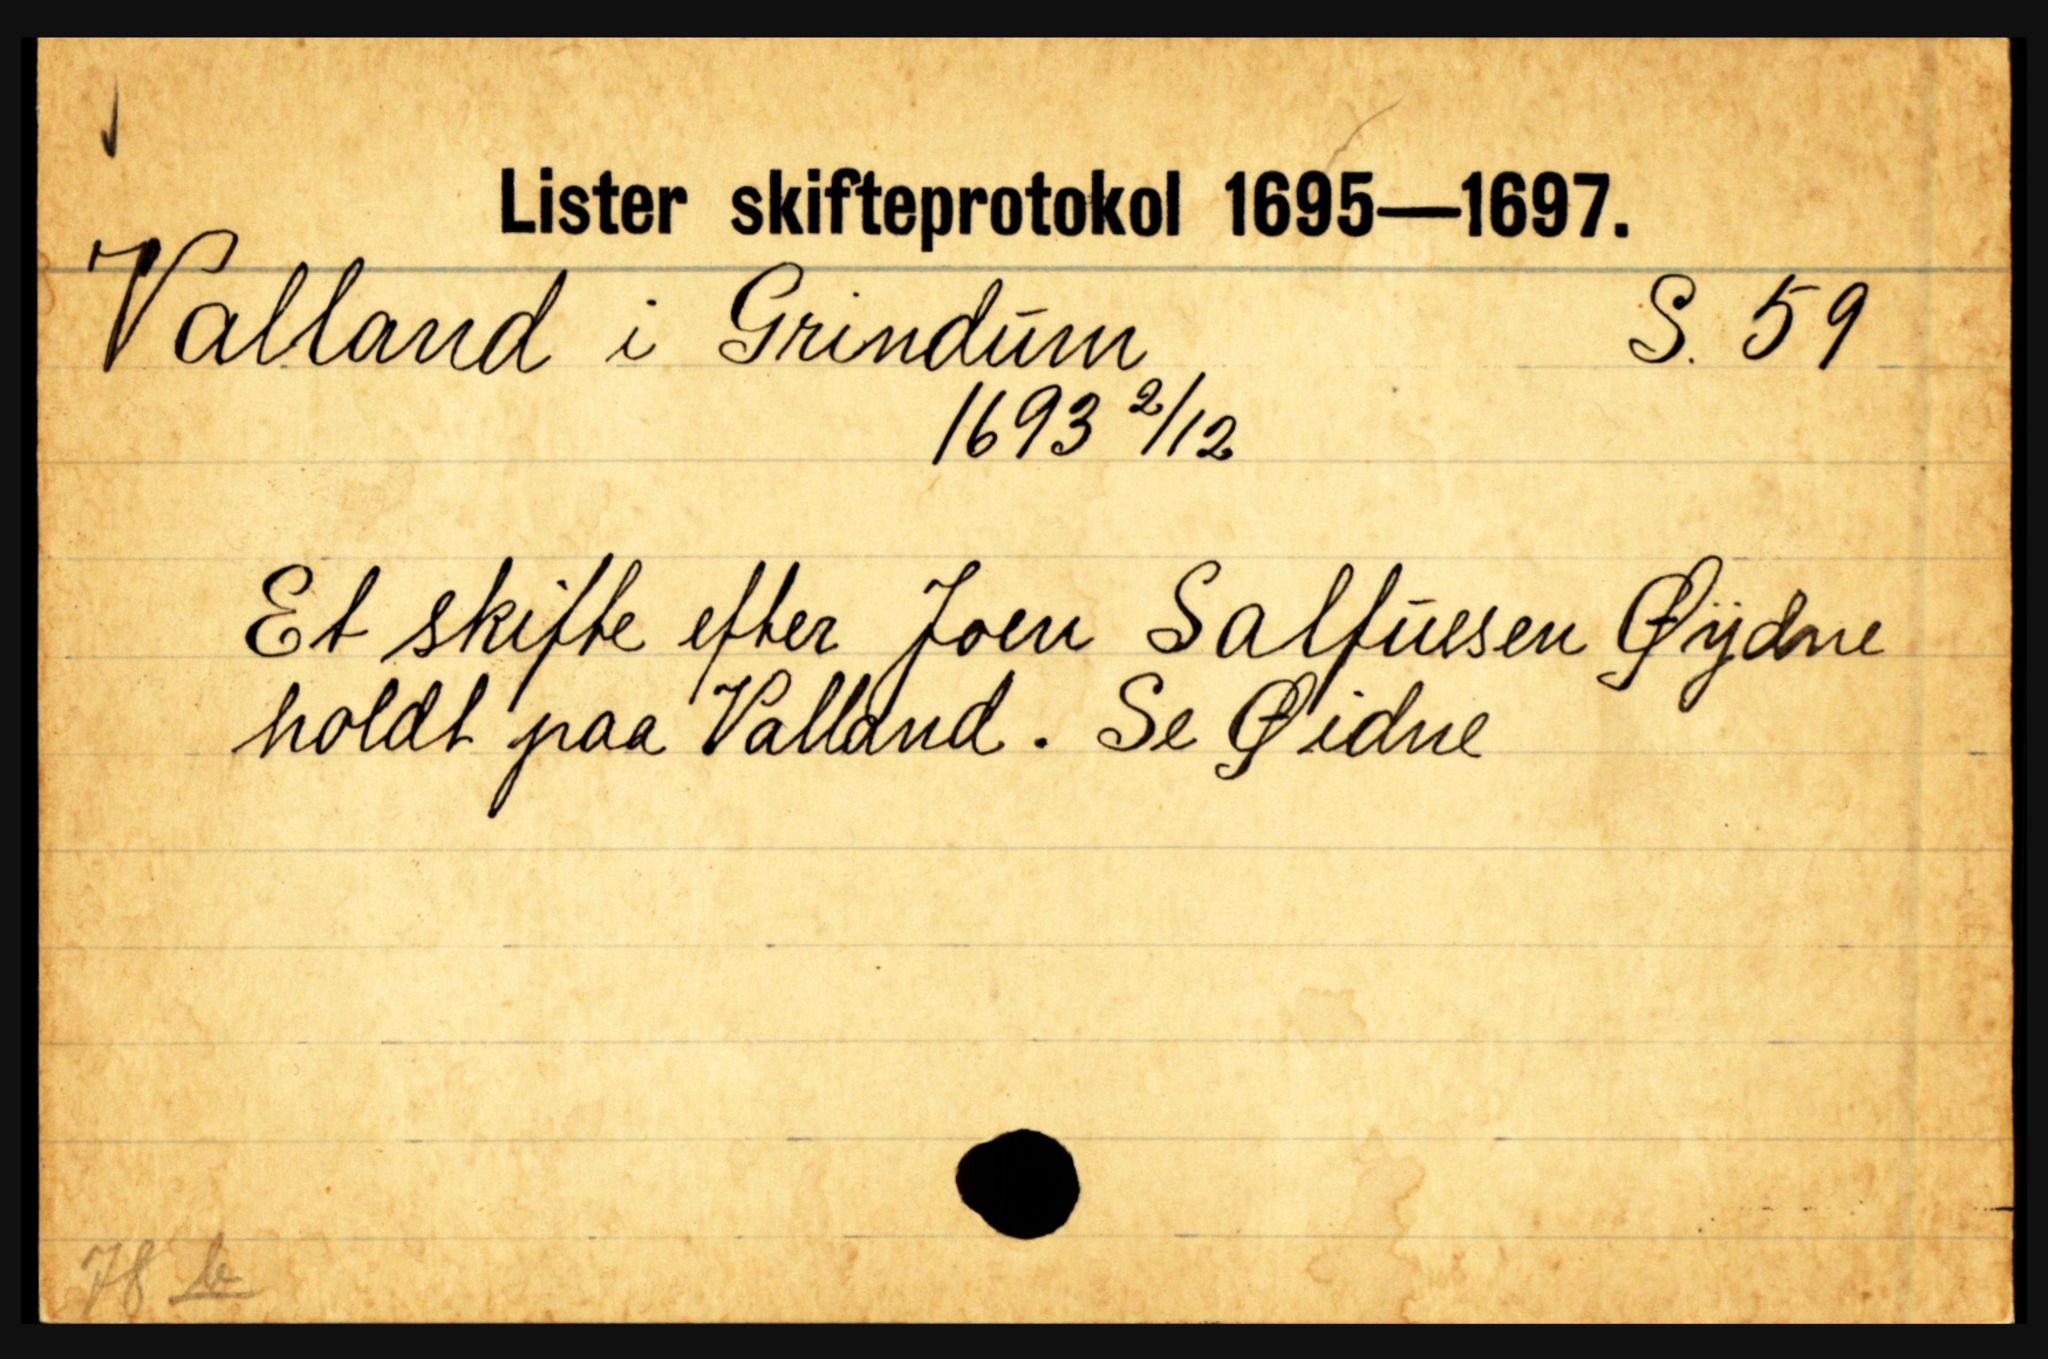 Lister skifteprotokol 1695—1697.
Valland i Grindum S. 59
1693 2/12
Et skifte efter Joen Salfuesen Øÿdne
holdt paa Valland. Se Øidne
78 b